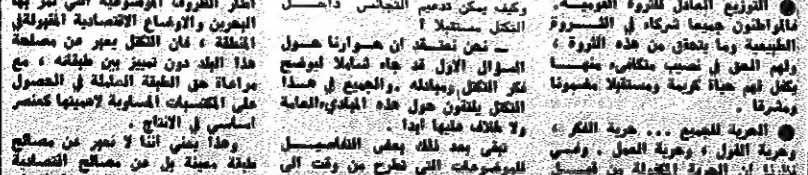 التوزيع العادل للثروة القومية.
فالمواطنون جميعا شركاء في الثروة
الطبيعية وما يتحقق من هذه الثروة ،
ولهم الحق في نصيب متكافىء منها
يكفل لهم حياة كريمة ومستقبلا مضمونا
ومشرقا .
الحرية للجميع ... حرية الفكر ،
وحرية القول ، وحرية العمل . وفي
الحرية المكفولة من قبل
وكيف يمكن تدعيم التجانس داخل
التكتل مستقبلا ؟
— نحن نعتقد ان حوارنا حول
السؤال الاول قد جاء شاملا ليوضح
فكر التكتل ومبادئه . والجميع في هذا
التكتل يلتقون حول هذه المبادىء العامة
ولا خلاف عليها أبدا .
تبقى بعد ذلك بعض التفاصيل
للموضوعات التي تطرح من وقت الى
اطار الظروف الموضوعية التي تمر بها
البحرين والاوضاع الاقتصادية المقبولة في
المنطقة ، فان التكتل يعبر عن مصلحة
هذا البلد دون تمييز بين طبقاته ، مع
مراعاة حق الطبقة العاملة في الحصول
على المكتسبات المساوية لاهميتها كعنصر
اساسي في الانتاج .
وهذا يعني اننا لا نعبر عن مصالح
طبقة معينة بل عن مصالح اقتصادية